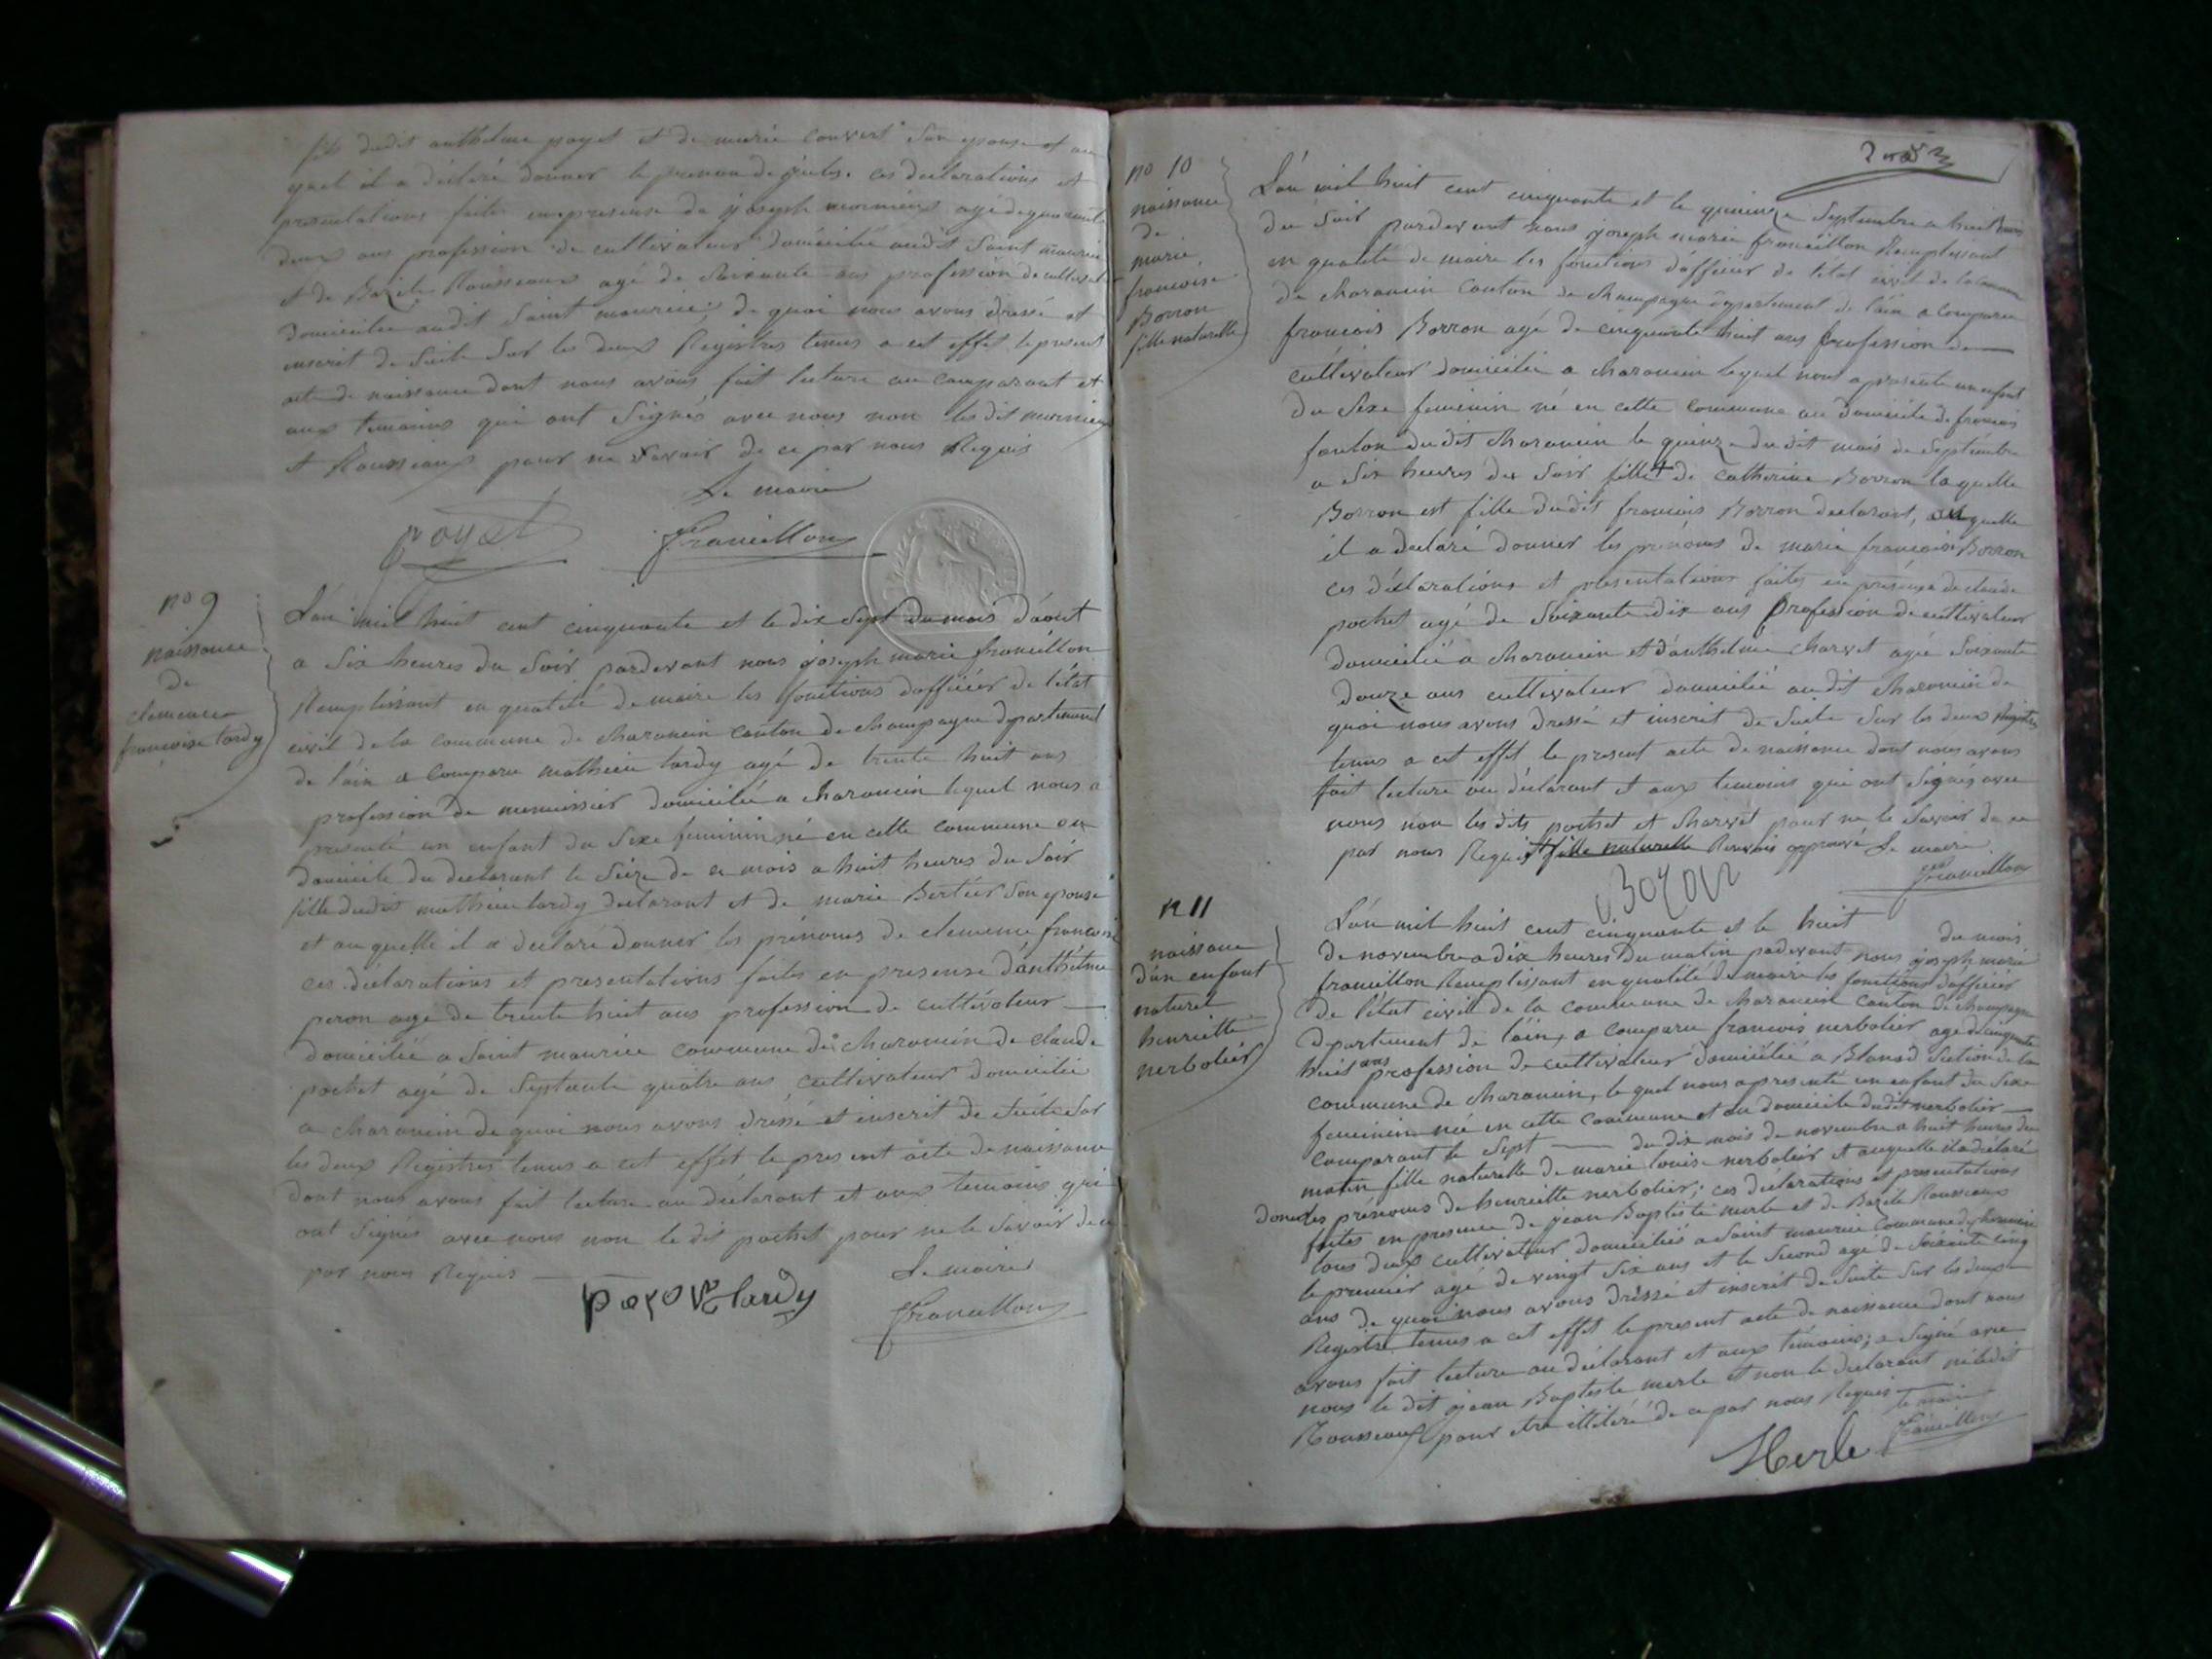 fils dudit anthelme payet et de marie Couvert son epouse et au
quel il a déclaré donner le prenom de jules. ces declarations et
presentations faites en presense de joseph mornieux agé de quarante
deux ans profession de cultivateur domicilié audit Saint maurice
et de Bazile Rousseaux agé de Soixante ans profession de cultivat
domicilie audit Saint maurice de quoi nous avons dressé et
inscrit de Suite Sur les deux Registres tenus a cet effet le present
acte de naissance dont nous avons fait lecture au comparant et
aux temoins qui ont Signés avec nous non les dit mornieux
et Rousseaux pour ne Savoir de ce par nous Requis
Le maire
payet francillon
no 9
naissance
de
clemence
francoise tardy
L'an mil huit cent cinquante et le dix Sept du mois d'aout
a Six heures du Soir pardevant nous joseph marie francillon
Remplissant en qualité de maire les fonctions d'afficier de l'état
civil de la commune de charancin canton de champagne departement
de l'ain a comparu mathieu tardy agé de trente huit ans
profession de menuissier domicilié a charancin lequel nous a
presenté un enfant du Sexe feminin né en cette commune au
domicile du declarant le Seize de ce mois a huit heures du Soir
fille dudit mathieu tardy declarant et de marie Bertier Son epouse
et au quelle il a declaré donner les prénoms de clemence francoise
ces déclarations et presentations faites en presense d'anthelme
peron agé de trente huit ans profession de cultivateur
domicilié a Saint maurice commune de charancin de claude
pochet agé de Septante quatre ans cultivateur domicilié
a charancin de quoi nous avons dréssé et inscrit de Suite Sur
les deux Registres tenus a cet effet le present acte de naissance
dont nous avons fait lecture au déclarant et aux temoins qui
ont Signés avec nous non le dit pochet pour ne le Savoir de ce
par nous Requis
Le maire
tardy francillon
no 10
naissance
de
marie
francoise
Borron
fille naturelle
L'an mil huit cent cinquante et le quinze Septembre a huit heures
du Soir pardevant nous joseph marie francillon Remplissant
en qualité de maire les fonctions d'afficier de l'état civil de la commune
de charancin Canton de champagne departement de l'ain a comparu
francois Borron agé de cinquante huit ans profession de
cultivateur domicilié a charancin lequel nous a presenté un enfant
du Sexe feminin né en cette commune au domicile de francois
du dit charancin le quinze du dit mois de Septembre
a Six heures du Soir fille + de Catherine Borron laquelle
Borron est fille dudit francois Borron declarant, auquelle
il a declaré donner les prénoms de marie francoise Borron
ces déclarations et presentations faites en présence de claude
pochet agé de Soixante dix ans profession de cultivateur
domicilié a charancin et d'anthelme charvet agé Soixante
douze ans cultivateur domicilié audit charancin de
quoi nous avons dressé et inscrit de Suite Sur les deux Registres
tenus a cet effet le present acte de naissance dont nous avons
fait lecture au déclarant et aux temoins qui ont Signés avec
nous non les dits pochet et charvet pour ne le Savoir de ce
par nous Requis + fille naturelle Renvois approuvé Le maire
francillon
n 11
naissance
d'un enfant
naturel
henriette
nerbolier
L'an mil huit cent cinquante et le huit du mois
de novembre a dix heures du matin pardevant nous joseph marie
francillon Remplissant en qualité de maire les fonctions d'afficier
de l'état civil de la commune de charancin canton de champagne
departement de l'ain, a comparu francois nerbolier agé de cinquante
huit ans profession de cultivateur domicilié a Blanod Section de la
commune de charancin, le quel nous a presenté un enfant du Sexe
feminin née en cette commune et au domicile dudit nerbolier
comparant le Sept du dix mois de novembre a huit heures du
matin fille naturelle de marie louise nerbolier et auquelle il a déclaré
donner les prénoms de henriette nerbolier; ces déclarations et presentations
faites en presence de jean Baptiste merle et de Bazile Rousseaux
tous deux cultivateur domiciliés a Saint maurice commune de charancin
le premier agé de vingt Six ans et le Second agé de Soixante cinq
ans de quoi nous avons dréssé et inscrit de Suite Sur les deux
Registre tenus a cet effet le present acte de naissance dont nous
avons fait lecture au déclarant et aux témoins; a Signé avec
nous le dit jean Baptiste merle et non le declarant ni ledit
Rousseaux pour etre illitéré de ce par nous Requis
le maire
Merle francillon